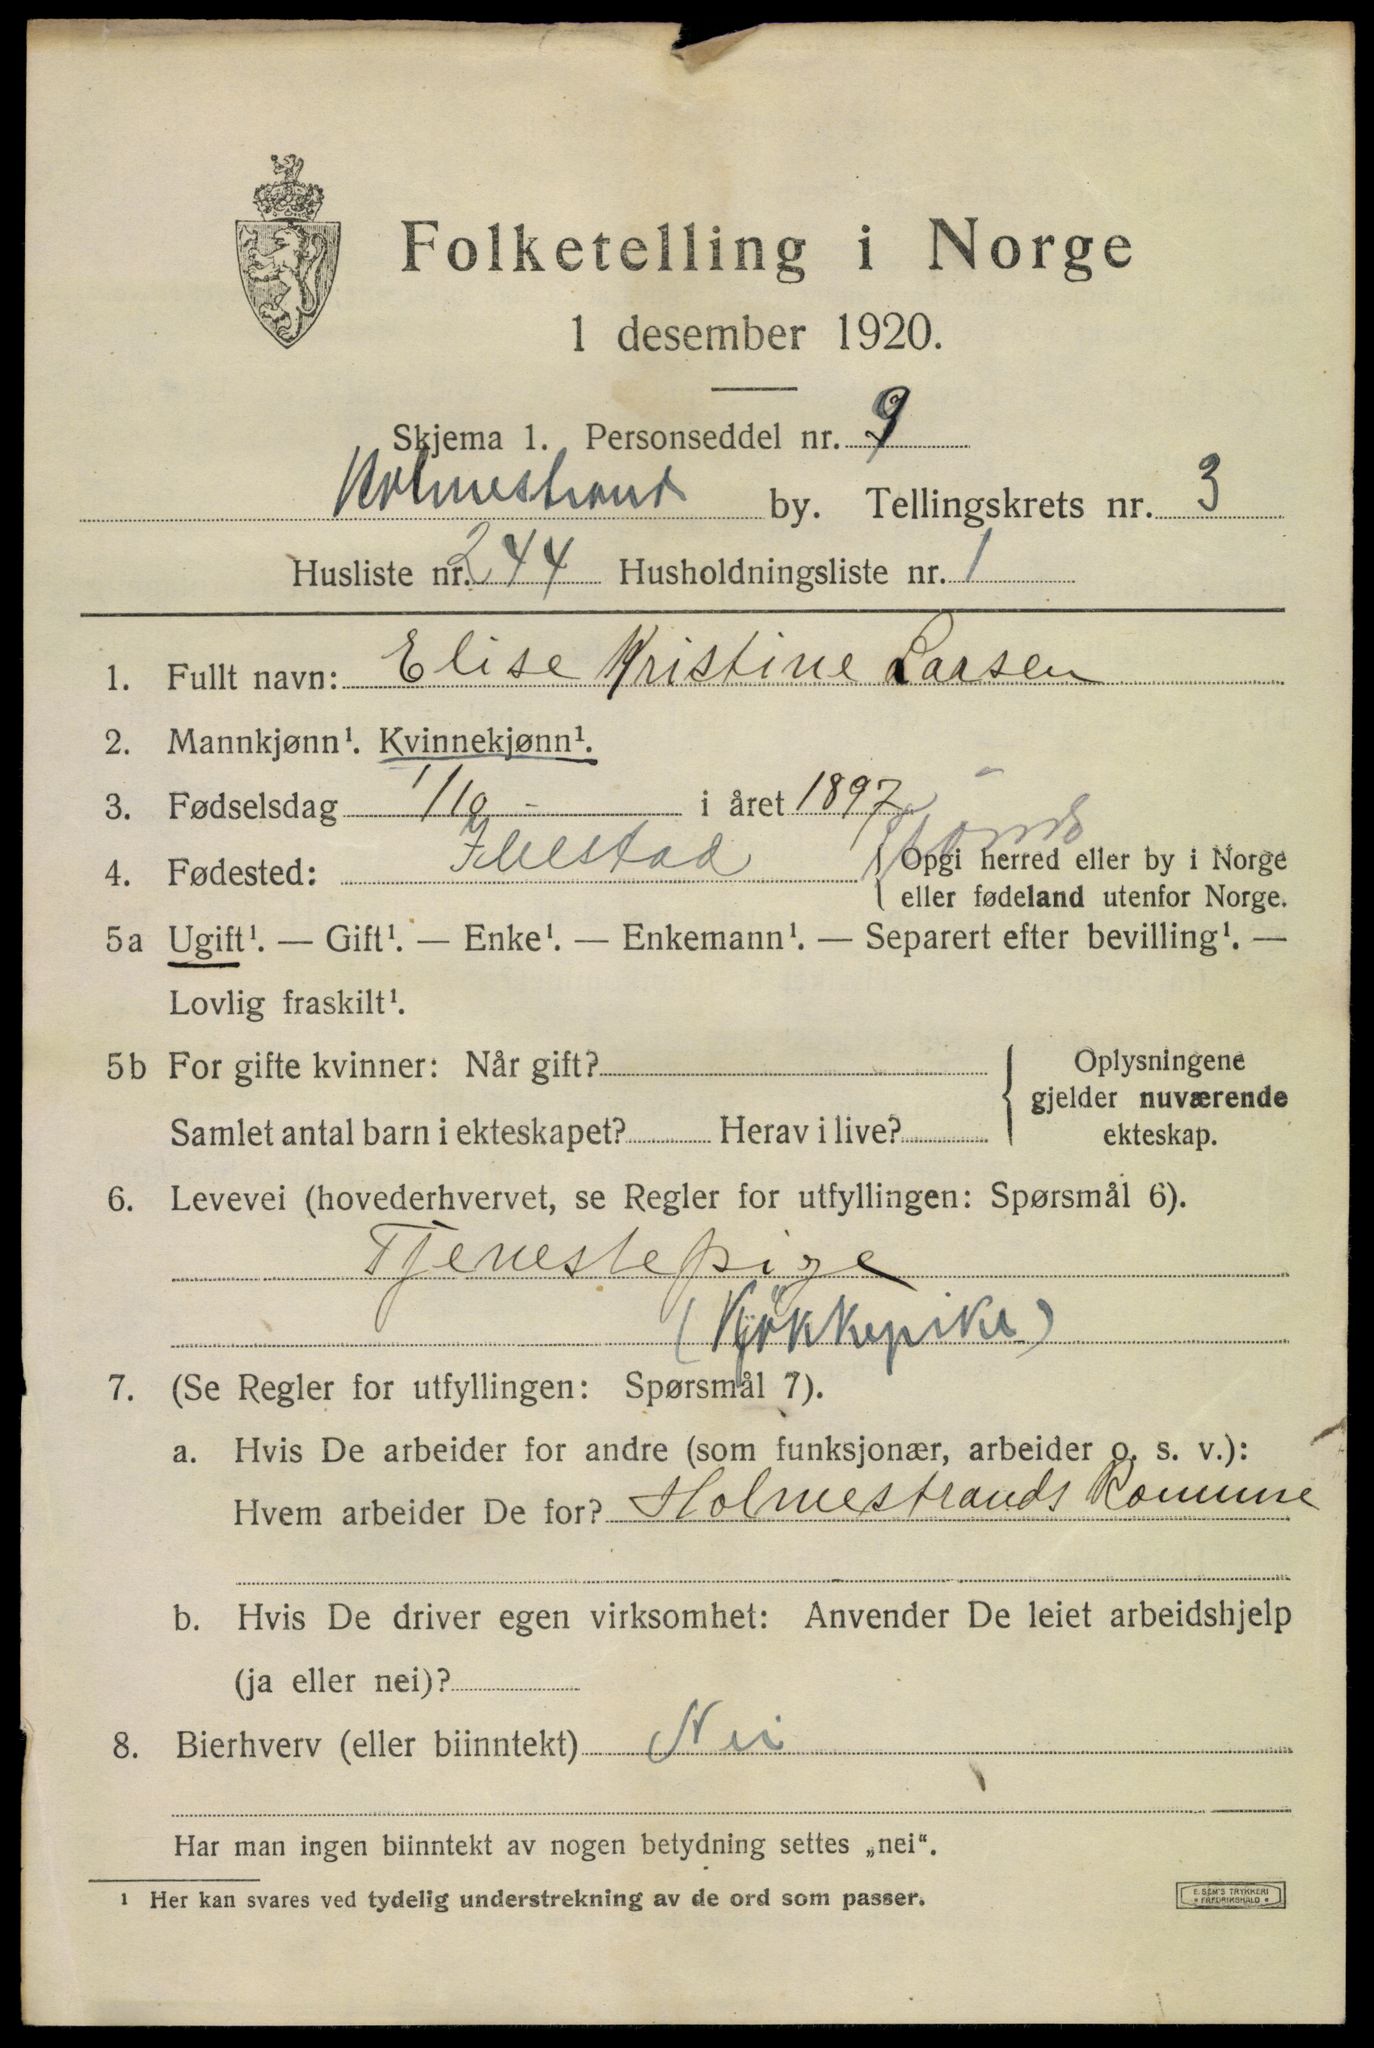 Folketelling i Norge
1 desember 1920.
Skjema 1. Personseddel nr. 9
Holmestrand by. Tellingskrets nr. 3
Husliste nr. 244 Husholdningsliste nr. 1
1. Fullt navn: Elise Kristine Larsen
2. Mannkjønn¹. Kvinnekjønn¹.
3. Fødselsdag 1/10 - i året 1897
4. Fødested: Opgi herred eller by i Norge
eller fødeland utenfor Norge.
5a Ugift¹. — Gift¹. — Enke¹. — Enkemann¹. — Separert efter bevilling¹. —
Lovlig fraskilt¹.
5b For gifte kvinner: Når gift?
Samlet antal barn i ekteskapet? Herav i live?
Oplysningene
gjelder nuværende
ekteskap.
6. Levevei (hovederhvervet, se Regler for utfyllingen: Spørsmål 6).
Tjenestepige
(Kjøkkepike)
7. (Se Regler for utfyllingen: Spørsmål 7).
a. Hvis De arbeider for andre (som funksjonær, arbeider o. s. v.):
Hvem arbeider De for? Holmestrands Komune
b. Hvis De driver egen virksomhet: Anvender De leiet arbeidshjelp
(ja eller nei)?
8. Bierhverv (eller biinntekt) Nei
Har man ingen biinntekt av nogen betydning settes „nei“.
¹ Her kan svares ved tydelig understrekning av de ord som passer.
E. SEM'S TRYKKERI
FREDRIKSHALD